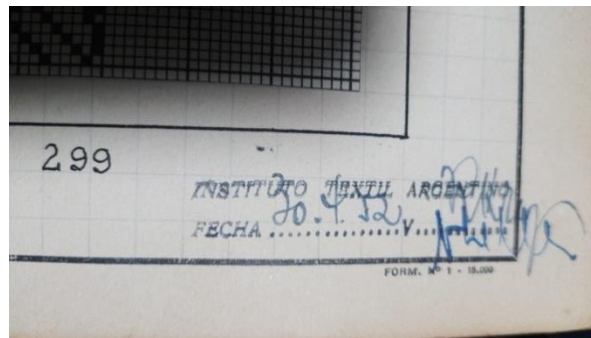 299
INSTITUTO TEXTIL ARGENTINO
FECHA 30.4.52 V.
FORM. Nº 1 - 15.000